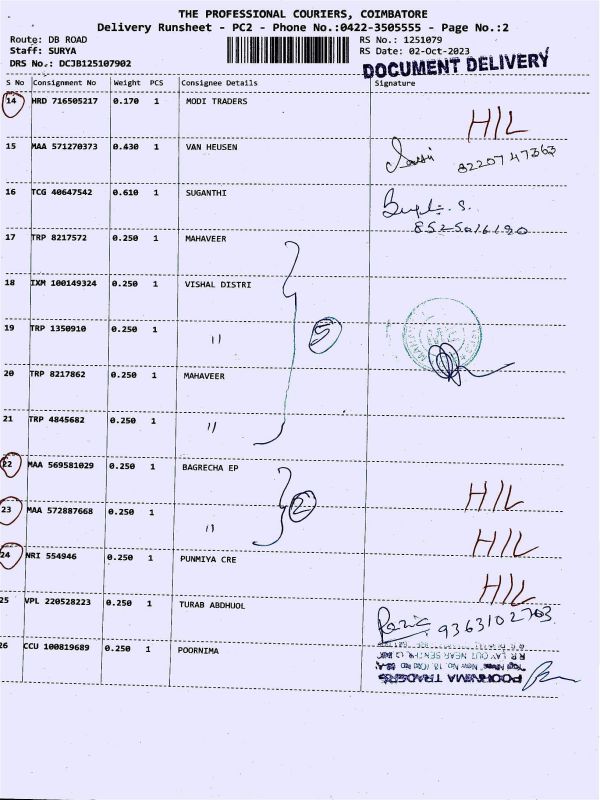 THE PROFESSIONAL COURIERS, COIMBATORE
Delivery Runsheet - PC2 - Phone No.:0422-3505555 - Page No.:2
Route: DB ROAD RS No.: 1251079
Staff: SURYA RS Date: 02-Oct-2023
DRS No.: DCJB125107902
DOCUMENT DELIVERY
S No Consignment No Weight PCS Consignee Details Signature
14 HRD 716505217 0.170 1 MODI TRADERS
H/L
15 MAA 571270373 0.430 1 VAN HEUSEN
8220747363
16 TCG 40647542 0.610 1 SUGANTHI
17 TRP 8217572 0.250 1 MAHAVEER
18 IXM 100149324 0.250 1 VISHAL DISTRI
19 TRP 1350910 0.250 1 "
5
20 TRP 8217862 0.250 1 MAHAVEER
21 TRP 4845682 0.250 1 "
22 MAA 569581029 0.250 1 BAGRECHA EP
H/L
2
23 MAA 572887668 0.250 1 "
H/L
24 NRI 554946 0.250 1 PUNMIYA CRE
H/L
25 VPL 220528223 0.250 1 TURAB ABDHUOL
9363102763
26 CCU 100819689 0.250 1 POORNIMA
POORNIMA TRADERS